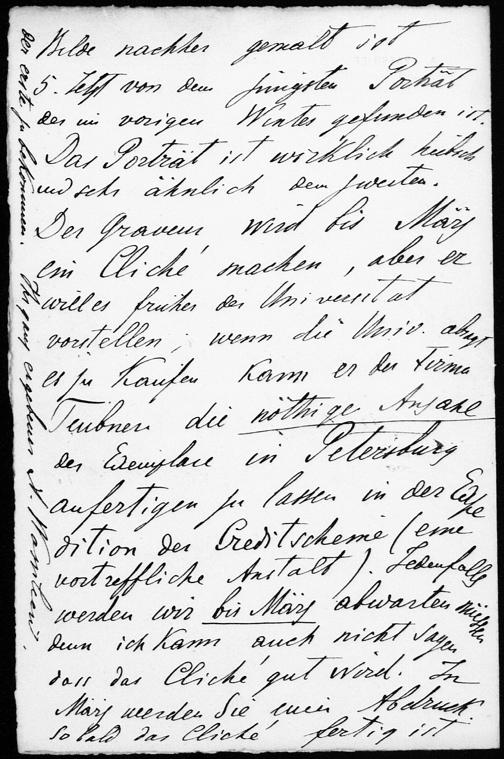 Bilde nachher gemalt ist
5. Jetzt von dem jüngsten Porträt
der im vorigen Winter gefunden ist.
Das Porträt ist wirklich hübsch
und sehr ähnlich dem zweiten.
Der Graveur wird bis März
ein Cliché machen, aber er
will es früher der Universitat
vorstellen; wenn die Univ.
es zu Kaufen kann er der Firma
Teubner die nöthige Anzahl
der Exemplare in Petersburg
anfertigen zu lassen in der Expe
dition der Creditscheine (eine
vortreffliche Anstalt). Jedenfalls
werden wir bis März abwarten müssen
denn ich Kann auch nicht sagen
dass das Cliché gut wird. In
März werden Sie einen Abdruck
so bald das Cliché fertig ist
der erste zu bekommen. Ihr ganz ergebener A.